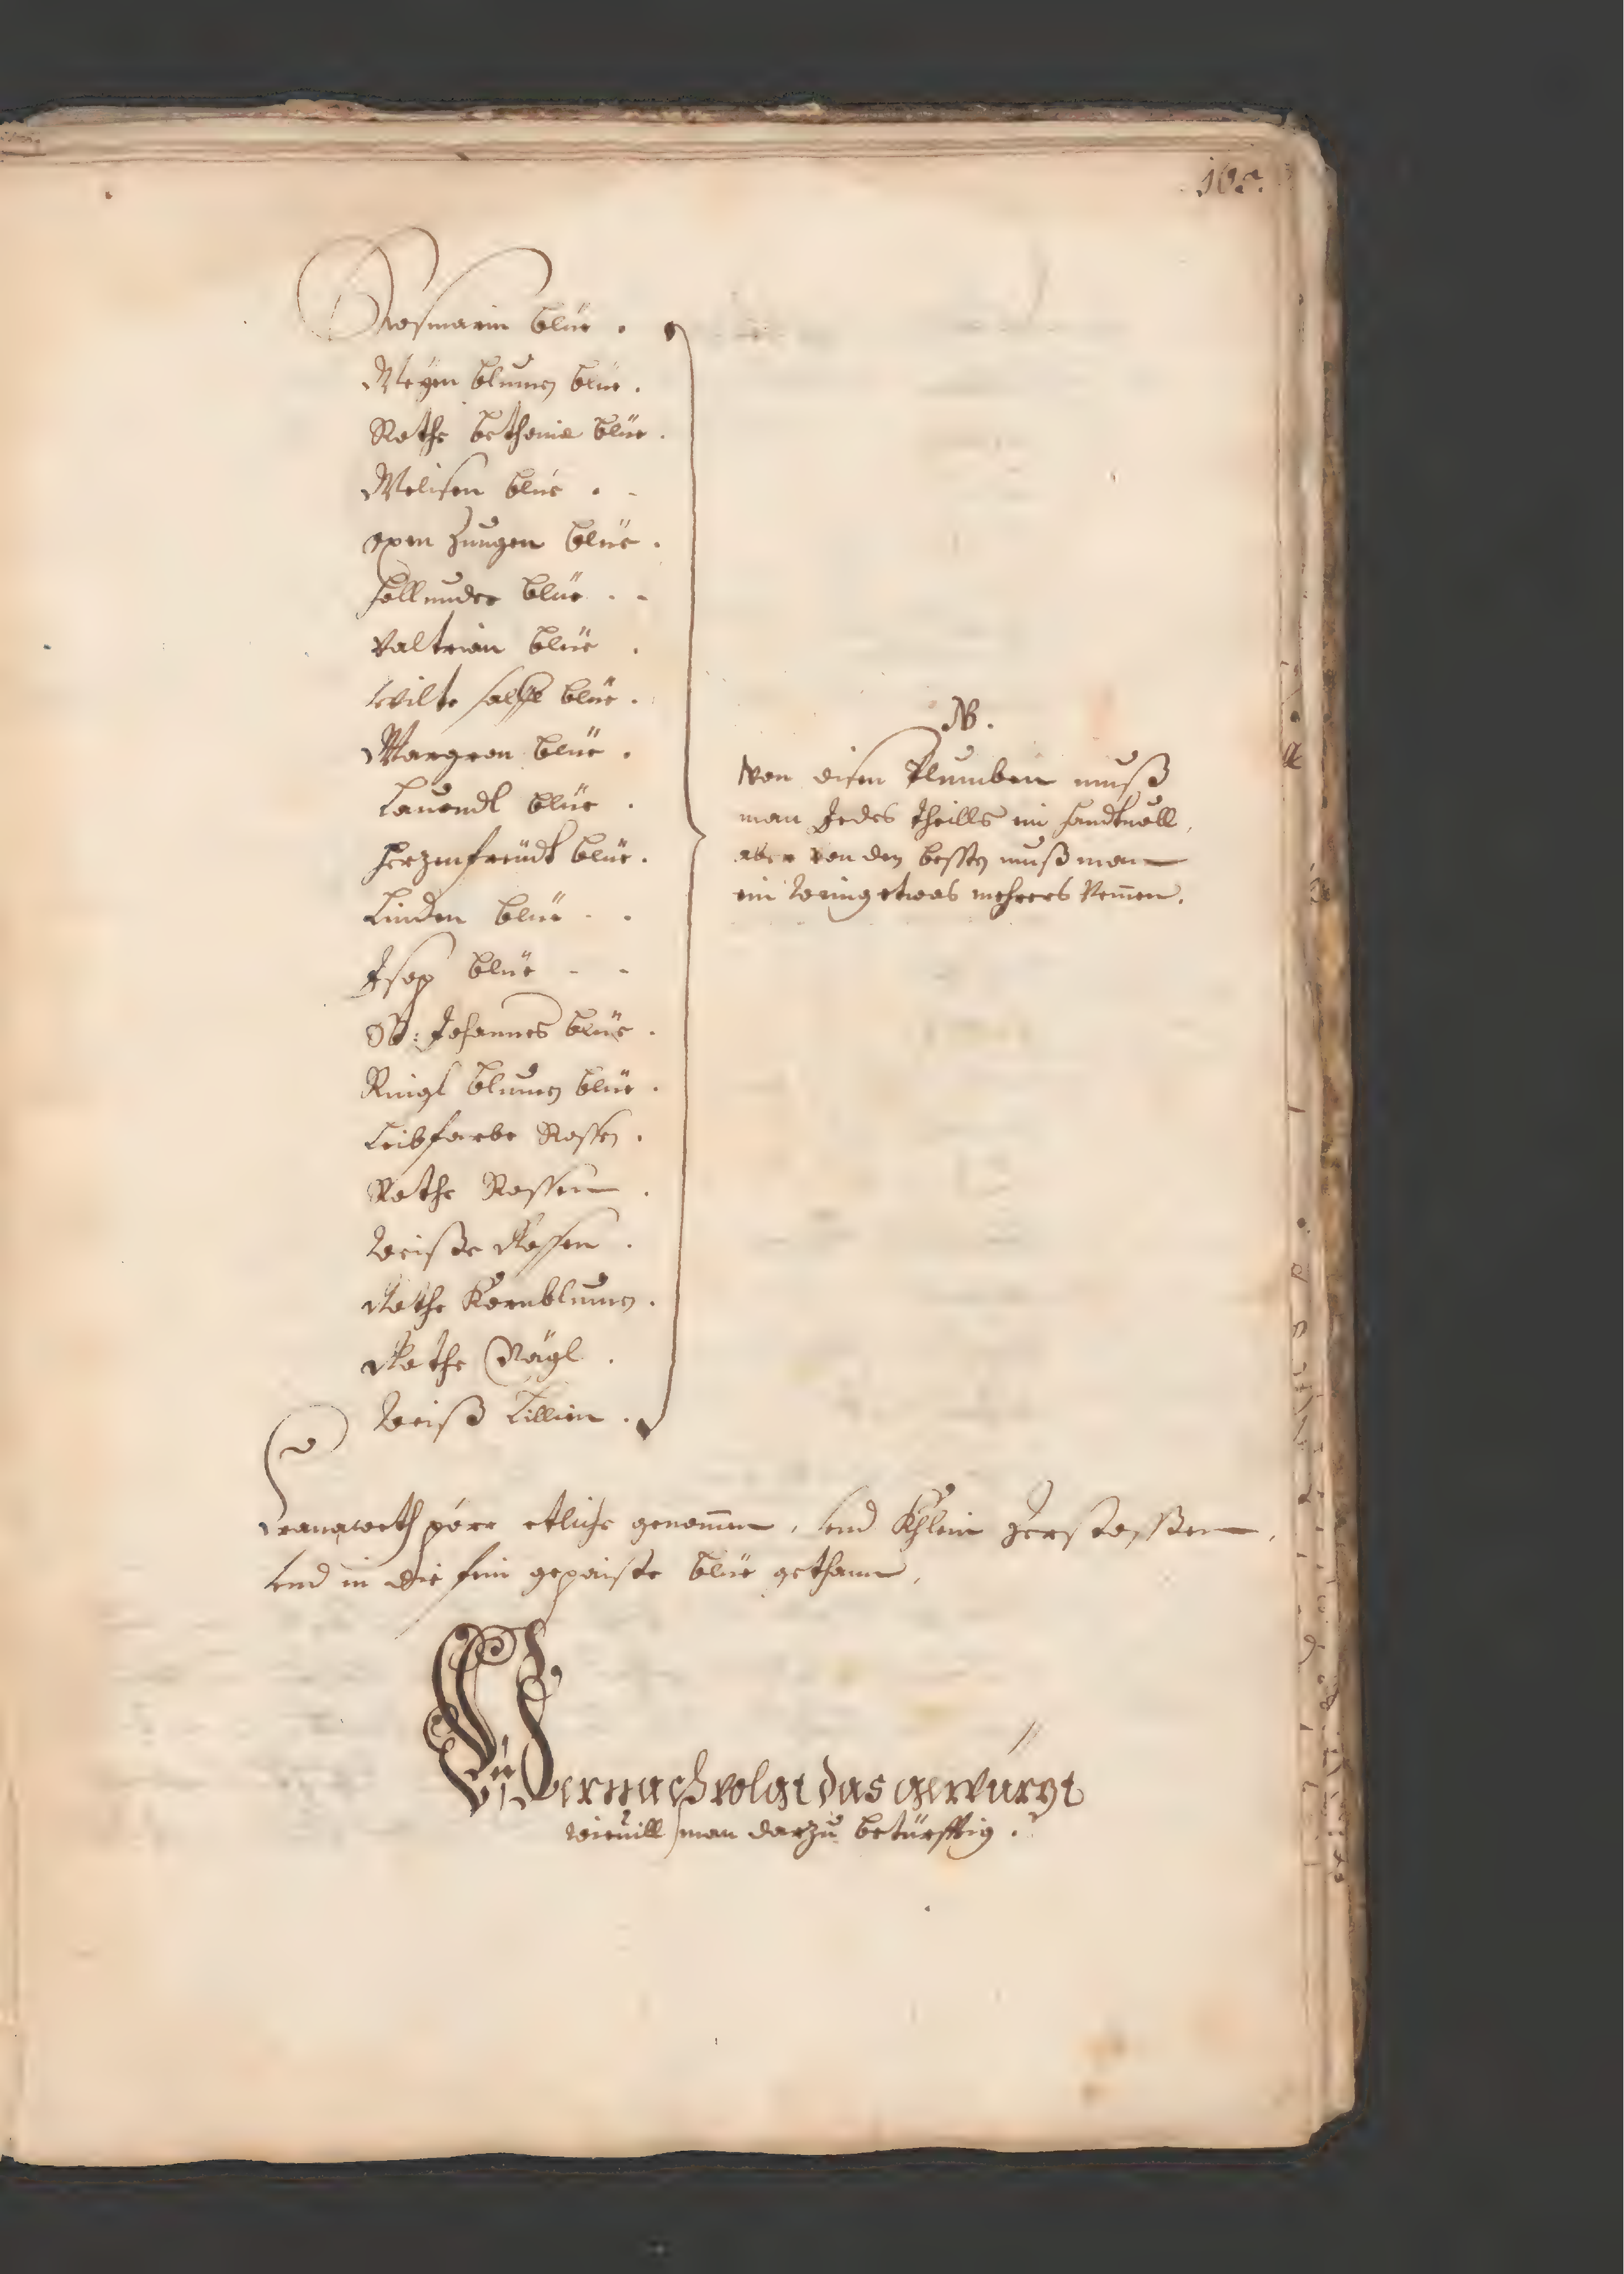 Rosmarin blüe .
Meyen blumen blüe .
Rothe bethonie blüe .
Melisen blüe . -
oxen Zungen blüe .
Hollunder blüe . -
Valtrian blüe .
Wilte salffe blüe .
Margron blüe .
Lauendl blüe .
Herzenfreüdt blüe .
Linden blüe - .
Isop blüe - -
St: Johannes blüe .
Ringl blumen blüe .
Leibfarbe Rossen .
Rothe Rossen .
Weiße Rossen .
Rothe Kornblumen .
Rothe Nägl .
Weiß Lillien .
NB .
Von disen Plumben muß
man Jedes theills ein handtuoll,
aber von den besten muß man
ein wenig etwas mehrers Nemen .
Cranaweth pörr etliche genommen, vnd Khlein Zerstossen,
vnd in die fein gepaiste blüe gethann,
Hernach volgt das gewürzt
wieuill man darzu betürfftig .